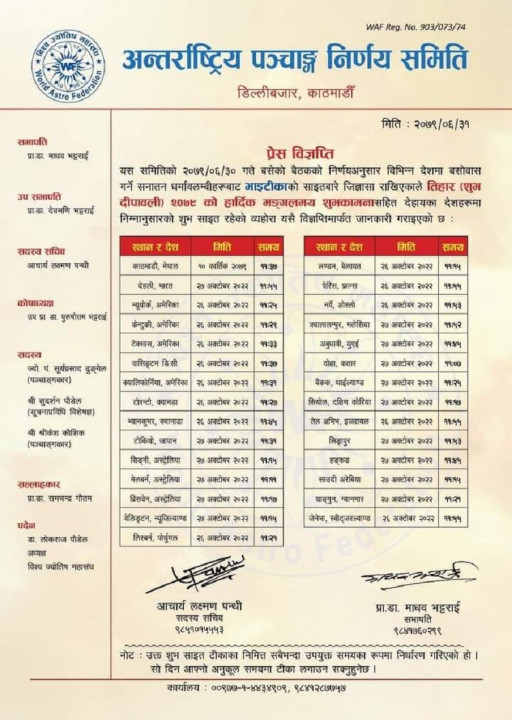 WAF Reg. No. 903/073/74
विश्व ज्योतिष महासंघ
WAF
World Astro Federation
अन्तर्राष्ट्रिय पञ्चाङ्ग निर्णय समिति
डिल्लीबजार, काठमाडौँ
मिति : २०७९/०६/३१
प्रेस विज्ञप्ति
यस समितिको २०७९/०६/३० गते बसेको बैठकको निर्णयअनुसार विभिन्न देशमा बसोवास
गर्ने सनातन धर्मावलम्बीहरूबाट भाइटीकाको साइतबारे जिज्ञासा राखिएकाले तिहार (शुभ
दीपावली) २०७९ को हार्दिक मङ्गलमय शुभकामनासहित देहायका देशहरूमा
निम्नानुसारको शुभ साइत रहेको व्यहोरा यसै विज्ञप्तिमार्फत जानकारी गराइएको छ :
सभापति
प्रा.डा. माधव भट्टराई
उप सभापति
प्रा.डा. देवमणि भट्टराई
सदस्य सचिव
आचार्य लक्ष्मण पन्थी
कोषाध्यक्ष
उप प्रा डा. पुरुषोत्तम भट्टराई
सदस्य
ज्यो. पं. सूर्यप्रसाद ढुङ्गेल
(पञ्चाङ्गकार)
श्री सुदर्शन पौडेल
(सूचनाप्रविधि विशेषज्ञ)
श्री श्रीकेश कौशिक
(पञ्चाङ्गकार)
सल्लाहकार
प्रा.डा. रामचन्द्र गौतम
पदेन
डा. लोकराज पौडेल
अध्यक्ष
विश्व ज्योतिष महासंघ
स्थान र देश मिति समय
काठमाडौं, नेपाल १० कार्तिक २०७९ ११:३७
देहली, भारत २७ अक्टोबर २०२२
न्यूयोर्क, अमेरिका २६ अक्टोबर २०२२
केन्टुकी, अमेरिका २६ अक्टोबर २०२२
टेक्सास, अमेरिका २६ अक्टोबर २०२२ ११:३३
वासिङ्टन डि.सी. २६ अक्टोबर २०२२
क्यालिफोर्निया, अमेरिका २६ अक्टोबर २०२२
टोरन्टो, क्यानडा २६ अक्टोबर २०२२
भ्यानकुभर, क्यानाडा २६ अक्टोबर २०२२
टोकियो, जापान २७ अक्टोबर २०२२
सिड्नी, अस्ट्रेलिया २७ अक्टोबर २०२२
मेलबर्न, अस्ट्रेलिया २७ अक्टोबर २०२२
ब्रिसवेन, अस्ट्रेलिया २७ अक्टोबर २०२२
वेलिङ्टन, न्यूजिल्याण्ड २७ अक्टोबर २०२२
लिस्बर्न, पोर्चुगल २६ अक्टोबर २०२२
स्थान र देश मिति समय
लण्डन, बेलायत २६ अक्टोबर २०२२
पेरिस, फ्रान्स २६ अक्टोबर २०२२
नर्वे, ओस्लो २६ अक्टोबर २०२२
क्वालालम्पुर, मलेसिया २७ अक्टोबर २०२२
अबुधावी, युएई २७ अक्टोबर २०२२
दोहा, कतार २७ अक्टोबर २०२२
बैंकक, थाईल्याण्ड २७ अक्टोबर २०२२
सियोल, दक्षिण कोरिया २७ अक्टोबर २०२२
तेल अभिभ, इजरायल २६ अक्टोबर २०२२
सिङ्गापुर २७ अक्टोबर २०२२
हङ्कङ २७ अक्टोबर २०२२
साउदी अरेबिया २७ अक्टोबर २०२२
याङ्गुन, म्यानमार २७ अक्टोबर २०२२
जेनेभा, स्वीट्जरल्याण्ड २६ अक्टोबर २०२२
आचार्य लक्ष्मण पन्थी
सदस्य सचिव
९८५१०१५५५३
प्रा.डा. माधव भट्टराई
सभापति
९८४१७६०२९९
नोट : उक्त शुभ साइत टीकाका निमित्त सबैभन्दा उपयुक्त समयका रूपमा निर्धारण गरिएको हो ।
सो दिन आफ्नो अनुकूल समयमा टीका लगाउन सक्नुहुनेछ ।
कार्यालय : ००९७७-१-४४३४९०९, ९८४१२८७७५७